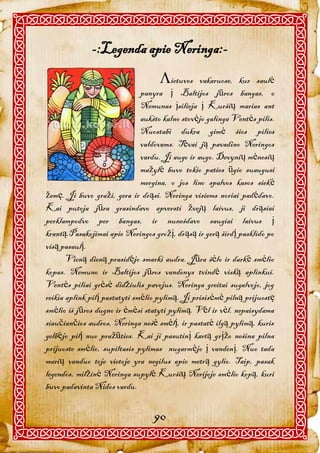 -:Legenda apie Neringa:-
Lietuvos vakaruose, kur saulė
panyra į Baltijos jūros bangas, o
Nemunas įsilieja į Kuršių marias ant
aukšto kalno stovėjo galinga Ventės pilis.
Nuostabi dukra gimė šios pilies
valdovams. Tėvai ją pavadino Neringos
vardu. Ji augo ir augo. Devynių mėnesių
mažylė buvo tokio paties ūgio suaugusi
mergina, o jos linų spalvos kasos siekė
žemę. Ji buvo graži, gera ir drąsi. Neringa visiems noriai padėdavo.
Kai putoja jūra grasindavo apversti žvejų laivus, ji drąsiai
perklampodavo per bangas, ir nunešdavo saugiai laivus į
krantą. Pasakojimai apie Neringos grožį, drąsą ir gerą širdį pasklido po
visą pasaulį.
Vieną dieną prasidėjo smarki audra. Jūra ėlė ir darkė smėlio
kopas. Nemuno ir Baltijos jūros vandenys tvindė viską aplinkui.
Ventės piliai grėsė didžiulis pavojus. Neringa greitai sugalvojo, jog
reikia aplink pilį pastatyti smėlio pylimą. Ji prisisėmė pilną prijuostę
smėlio iš jūros dugno ir ėmėsi statyti pylimą. Vėl ir vėl, nepaisydama
siaučiančios audros, Neringa nešė smėlį, ir pastatė ilgą pylimą, kuris
gelbėjo pilį nuo pražūties. Kai ji pasutinį kartą grįžo nešina pilna
prijuoste smėlio, supiltasis pylimas nugarmėjo į vandenį. Nuo tada
marių vanduo toje vietoje yra nogilus apie metrą gylio. Taip, pasak
legendos, milžinė Neringa supylė Kuršių Nerijoje smėlio kopą, kuri
buvo padavinta Nidos vardu.
90